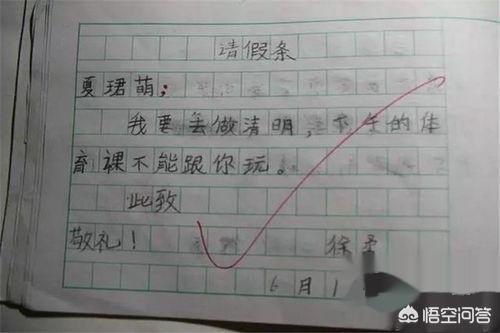 请假条
夏珺萌：
我要去做清明，下午的体
育裸不能跟你玩。
此致
敬礼！
徐
6月1
悟空问答